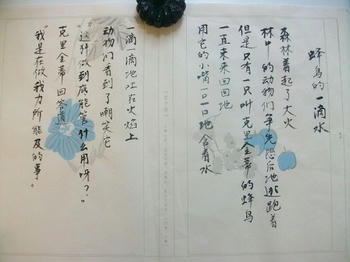 蜂鸟的一滴水
森林着起了大火
林中的动物们争先恐后地逃跑着
但是只有一只叫克里金蒂的蜂鸟
一直来来回回地
用它的小嘴一口一口地含着水
一滴滴地吐在火焰上
动物们看到了嘲笑它
“这样做到底能管什么用呀？”
克里金蒂回答道
“我是在做我力所能及的事。”